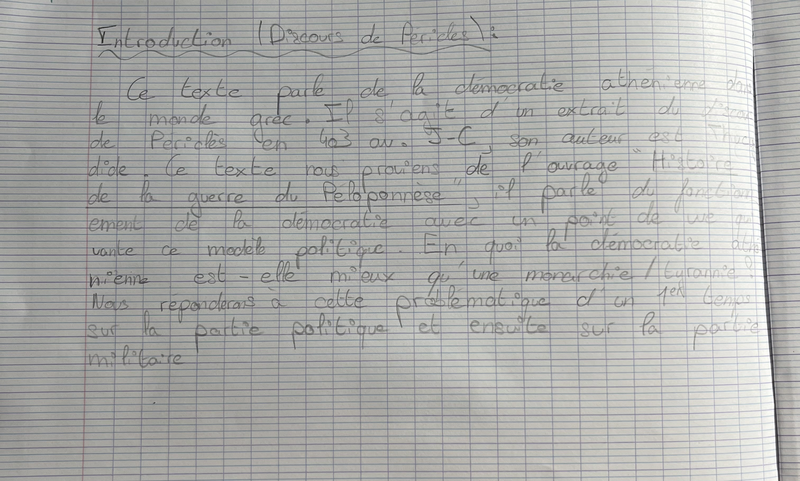 Introduction (Discours de Périclès):
Ce texte parle de la démocratie athénienne dans
le monde grec. Il s'agit d'un extrait du
de Périclès en 403 av. J-C, son auteur est Thucy
dide. Ce texte nous proviens de l'ouvrage "Histoire
de la guerre du Péloponnèse", il parle du fonction
ement de la démocratie avec un point de vue
vante ce modèle politique. En quoi la démocratie athé
nienne est-elle mieux qu'une monarchie/tyrannie?
Nous réponderais à cette problématique d'un 1er temps
sur la partie politique et ensuite sur la partie
militaire